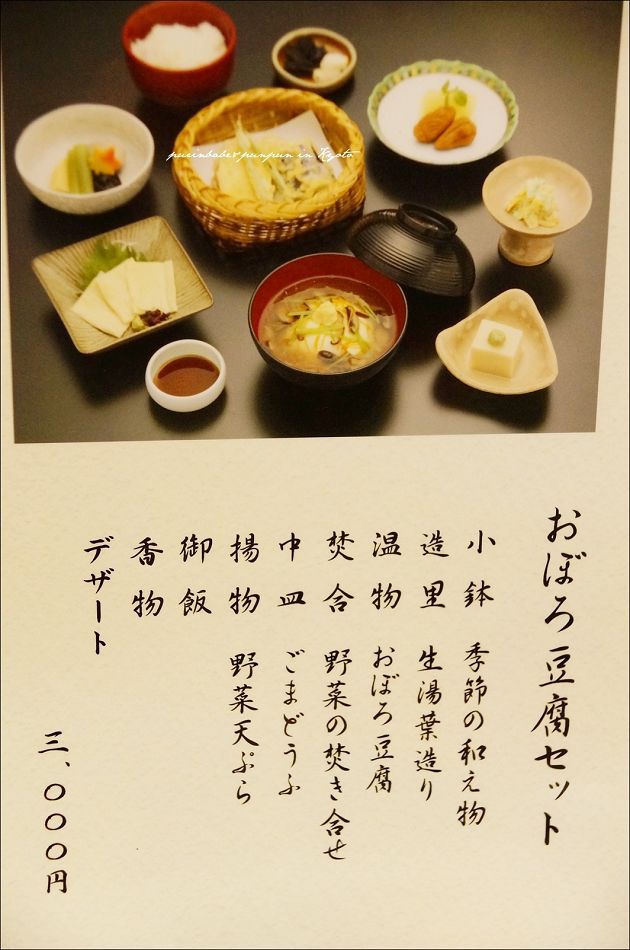 pueinbabe&punpun in Kyoto
おぼろ豆腐セット
小鉢 季節の和え物
造里 生湯葉造り
温物 おぼろ豆腐
焚合 野菜の焚き合せ
中皿 ごまどうふ
揚物 野菜天ぷら
御飯
香物
デザート
三、〇〇〇円